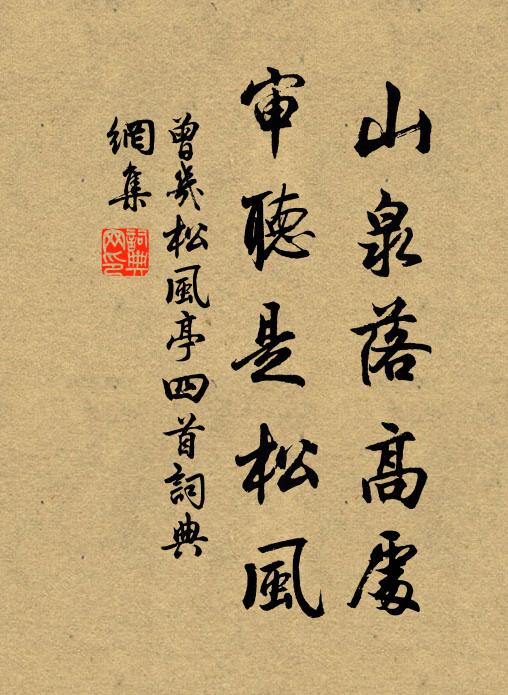 山泉落高處
审聽是松風
曾幾松風亭四首詞典
網集
詞典
网印